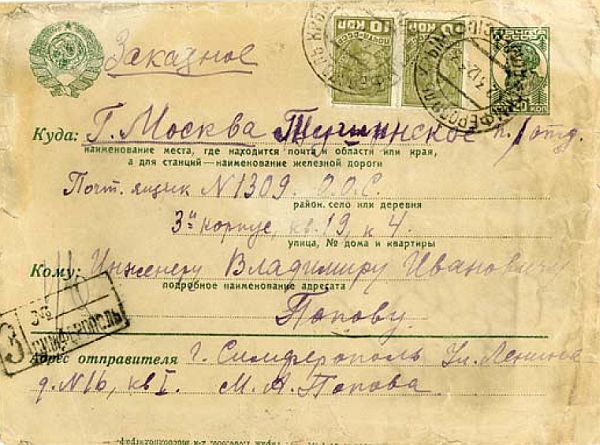 Заказное
10 КОП
КОП
Куда: Г. Москва Тушинское п/отд.
наименование места, где находится почта и области или края,
а для станций—наименование железной дороги
Почт. ящик N 1309. О.О.С.
район, село или деревня
3й корпус, кв. 19, к 4.
улица, № дома и квартиры
Кому: Инженеру Владимиру Ивановичу
подробное наименование адресата
Попову.
З
СИМФЕРОПОЛЬ
Адрес отправителя г. Симферополь Ул. Ленина
д. N 1б, кв I. М. А. Попова